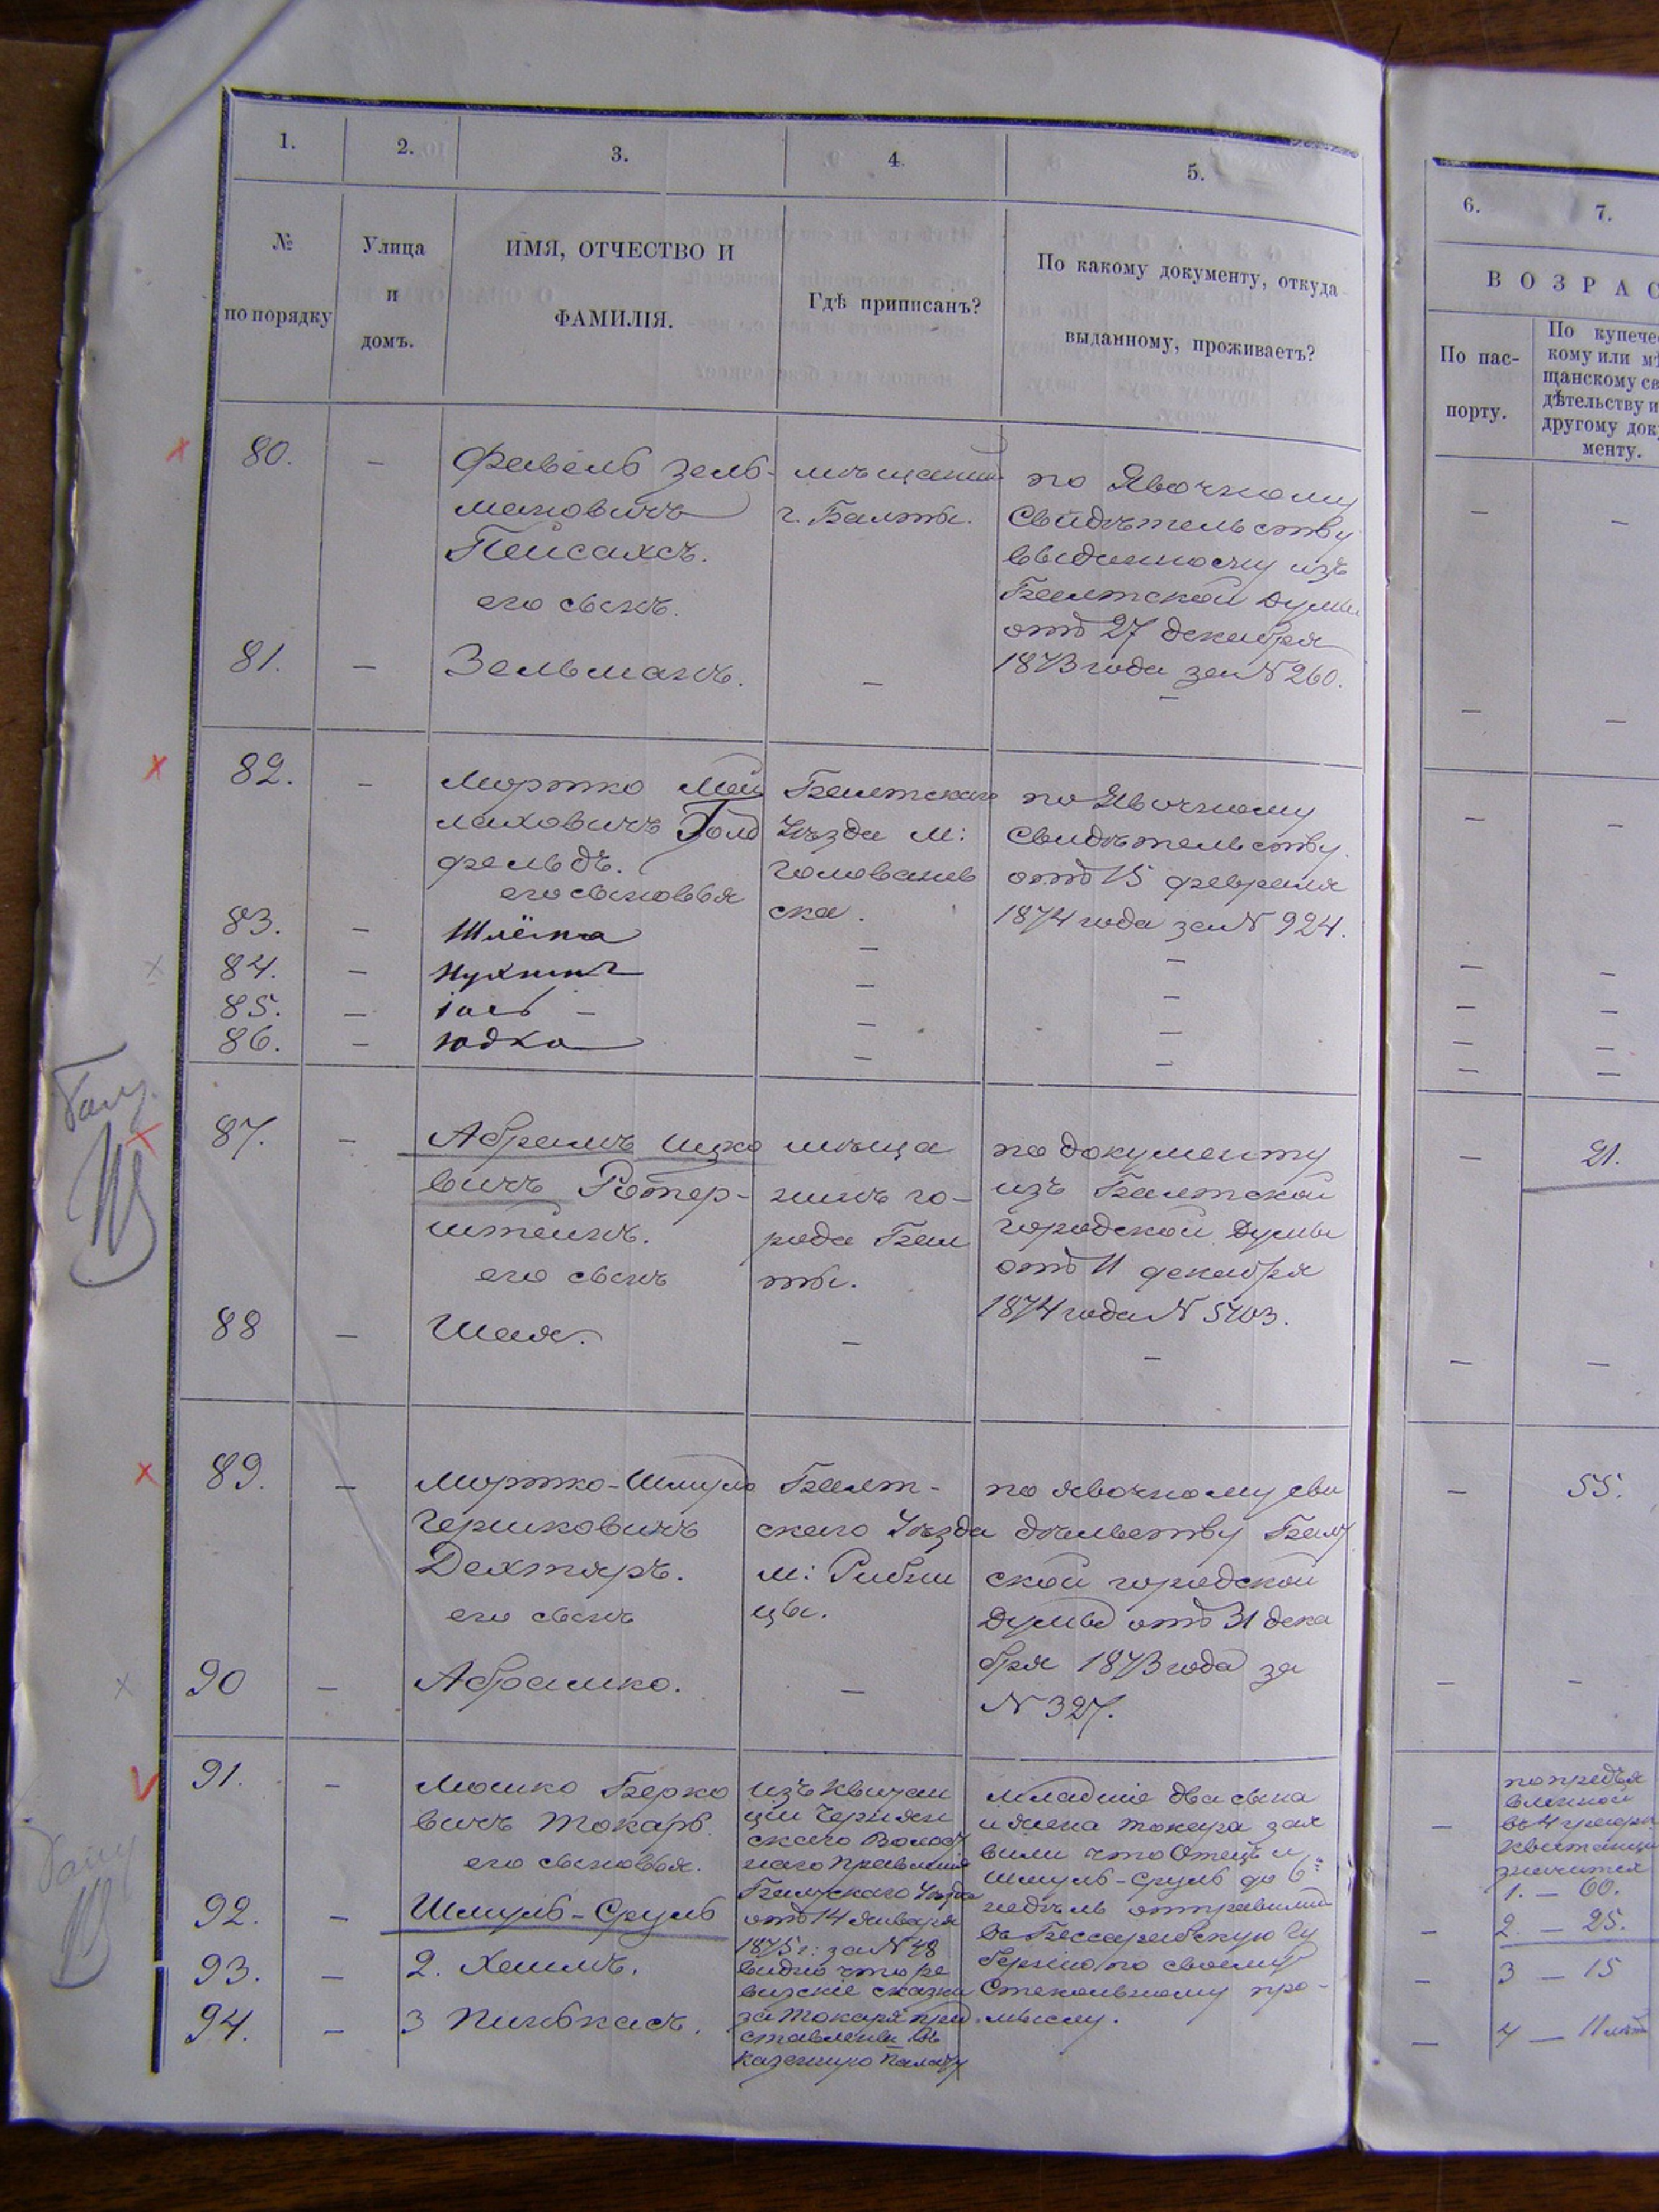 1.
2.
3.
4.
5.
6.
7.
№
по порядку
Улица
и
домъ.
ИМЯ, ОТЧЕСТВО И
ФАМИЛІЯ.
Гдѣ приписанъ?
По какому документу, откуда
выданному, проживаетъ?
ВОЗРАС
По пас-
порту.
По купече
кому или мѣ
щанскому св
дѣтельству и
другому док
менту.
80.
Фавель Зель-
мановичъ
Пейсахсъ.
его сынъ.
мѣщанинъ
г. Балты.
по Явочному
Свидѣтельству
выданному изъ
Балтской Думы
отъ 27 декабря
1873 года за № 260.
81.
Зельманъ.
82.
Мортко Мей
лаховичъ Голд
фельдъ.
его сыновья
Балтскаго
Уѣзда м:
Голованев
ска.
по Явочному
Свидѣтельству
отъ 15 февраля
1874 года за № 924.
83.
Шлёма
84.
Нухимъ
85.
Іось
86.
Юдко
87.
Абрамъ Ицко
вичъ Ротер-
штейнъ.
его сынъ
мѣща
нинъ го-
рода Бал
ты.
по документу
изъ Балтской
городской Думы
отъ 11 декабря
1874 года № 5703.
21.
88
Шая.
89.
Мортко-Шмуль
Гершковичъ
Дехтяръ.
его сынъ
Балт-
скаго Уѣзда
м: Рибни
цы.
по явочному сви
дѣтельству Балт
ской городской
Думы отъ 31 дека
бря 1873 года за
№ 327.
55.
90
Абрашко.
91.
Мошко Берко
вичъ Токарь.
его сыновья.
изъ Квитан
ціи Чернян
скаго Волост
наго Правленія
Балтскаго Уѣзда
отъ 14 Января
1875 г: за № 48
видно что ре
визскіе сказки
за Токаря пред
ставлены въ
Казенную Палату
младшіе два сына
и жена Токаря зая
вили что Отецъ и
Шмуль-Сруль до 6:
недѣль отправились
въ Бессарабскую Гу
бернію по своему
Стекольному про-
мыслу.
по предъя
вленной
въ 4 графѣ
квитанціи
значится
1. — 60.
92.
Шмуль-Сруль
2 — 25.
93.
2. Хаимъ.
3 — 15
94.
3 Пинькасъ.
4 — 11 лѣтъ